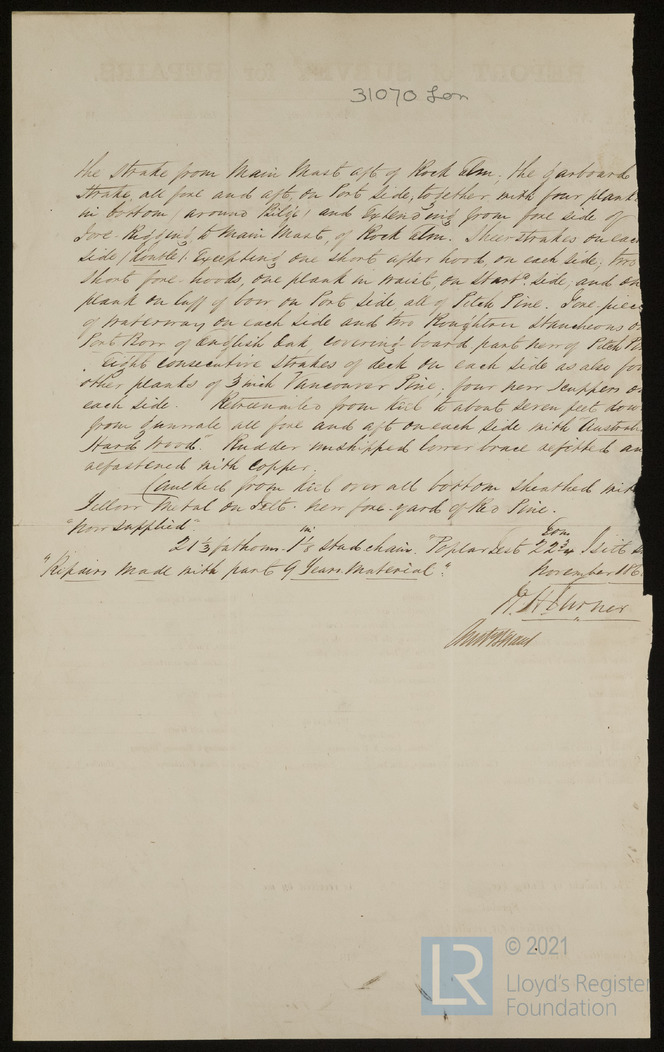 31070 Lon
the strake from Main Mast aft of Rock Elm, the Garboard
Strake, all fore and aft, on Port side, together with four plank
in bottom (around Bilge) and Extending from fore side of
Fore-Rigging to Main Mast, of Rock Elm. Sheerstrakes on each
side (double). Excepting one short after hood, on each side, two
short fore-hoods, one plank in waist, on Starb. side, and on
plank on luff of bow on Port side all of Pitch Pine. Fore-piec
of waterway on each side and two Roughtree Stancheons o
Port Bow of English Oak covering board part new of Pitch P
Eight consecutive strakes of deck on each side as also fo
other planks of 3 inch Vancouver Pine, four new scuppers o
each side. Retreenailed from Keel to about seven feet dow
from Gunwale all fore and aft on each side with "Austral
Hard Wood". Rudder unshipped lower brace refitted an
refastened with Copper.
Caulked from Keel over all bottom sheathed wit
Yellow Metal on Felt. New fore-yard of Red Pine.
"Now supplied"
21 1/3 fathoms 1 1/8 in stud chain. "Poplar Test 22 3/4
"Repairs made with part 9 Years Material". November 186
REPORT of SURVEY for REPAIRS.
LR
© 2021
Lloyd's Register
Foundation